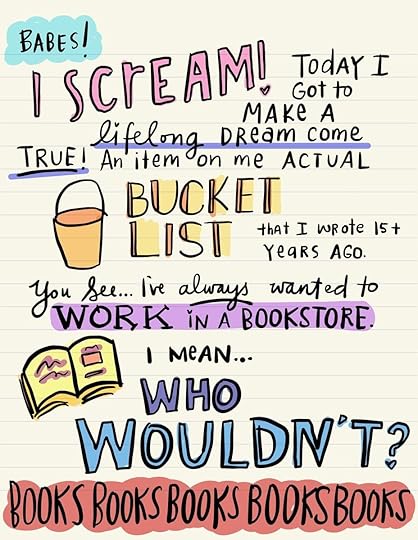 BABES!
I SCREAM! TODAY I
GOT to
MAKE A
lifelong DREAM COME
TRUE! An item on me ACTUAL
BUCKET
LIST that I WROTE 15+
YEARS AGO.
You see... I've always wanted to
WORK iN A BOOKSTORE.
I MEAN...
WHO
WOULDN'T?
BOOKS BOOKS BOOKS BOOKS BOOKS